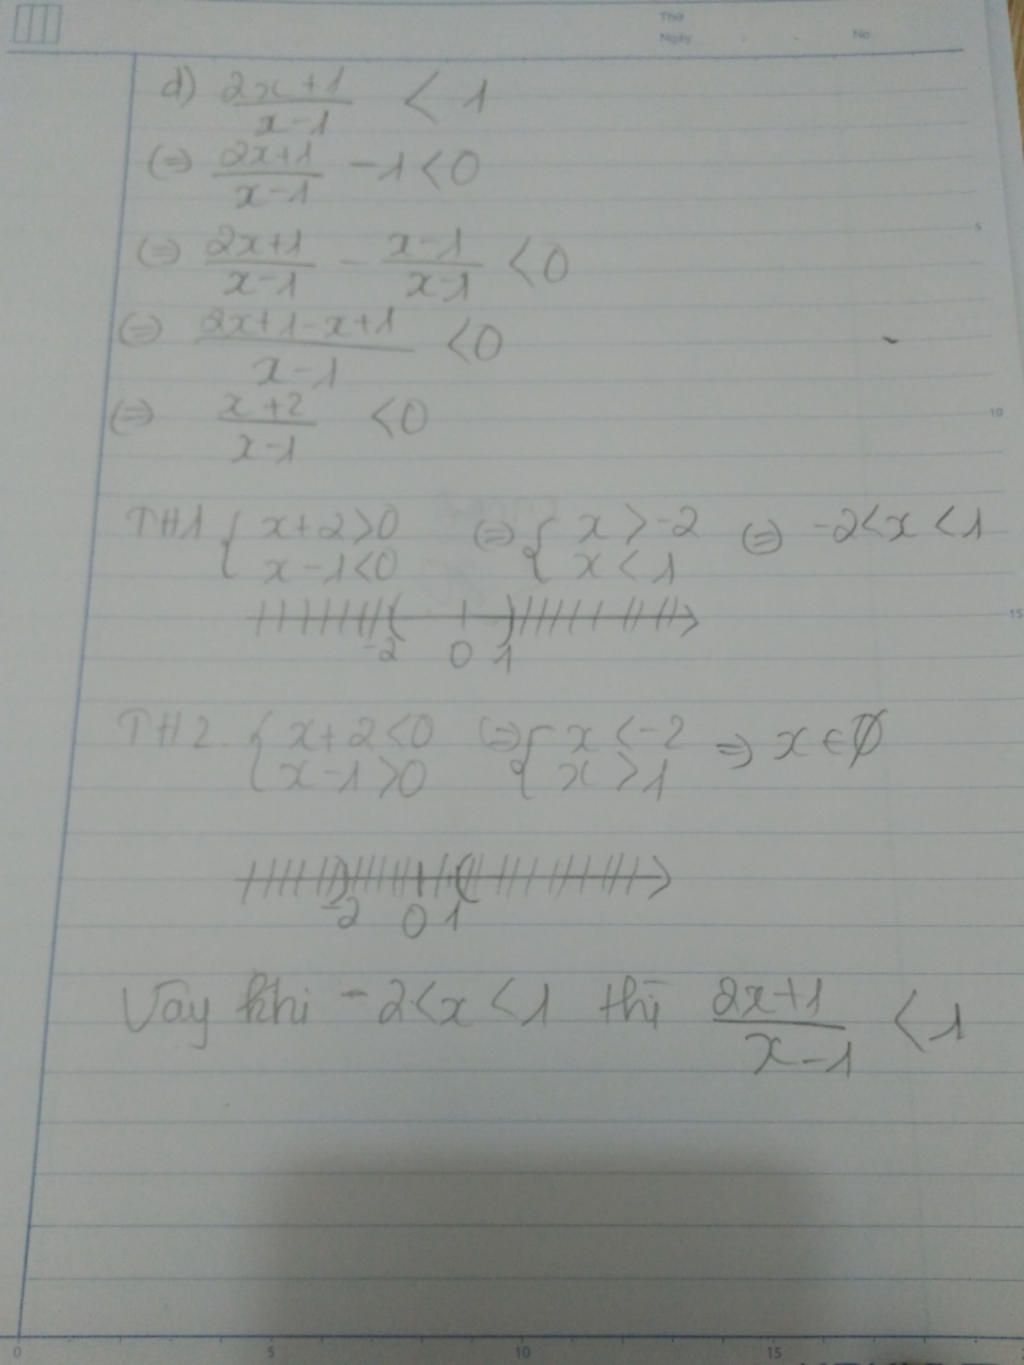 Thứ
Ngày No.
d) (2x+1)/(x-1) < 1
(=) (2x+1)/(x-1) - 1 < 0
(=) (2x+1)/(x-1) - (x-1)/(x-1) < 0
5
(=) (2x+1-x+1)/(x-1) < 0
(=) (x+2)/(x-1) < 0
10
TH1 { x+2>0 (=) { x>-2 (=) -2<x<1
x-1<0 x<1
15
-2 0 1
TH2. { x+2<0 (=) { x<-2 => x∈∅
x-1>0 x>1
-2 0 1
Vậy khi -2<x<1 thì (2x+1)/(x-1) < 1
0 5 10 15